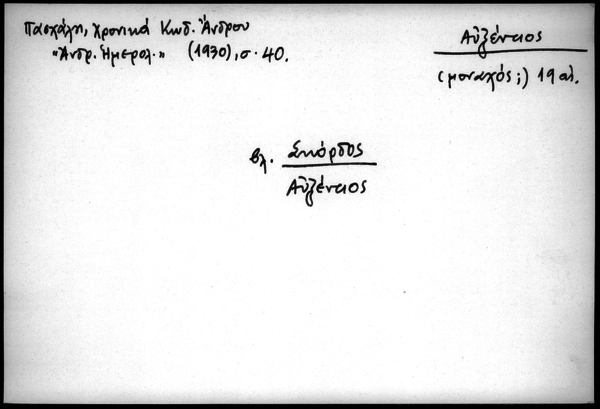 Πασχάλη, Χρονικά Κωδ. Ἄνδρου
"Ἀνδρ. Ἡμερολ." (1930), σ. 40.
Αὐξέντιος
(μοναχός;) 19 αἰ.
βλ. Σκόρδος
Αὐξέντιος